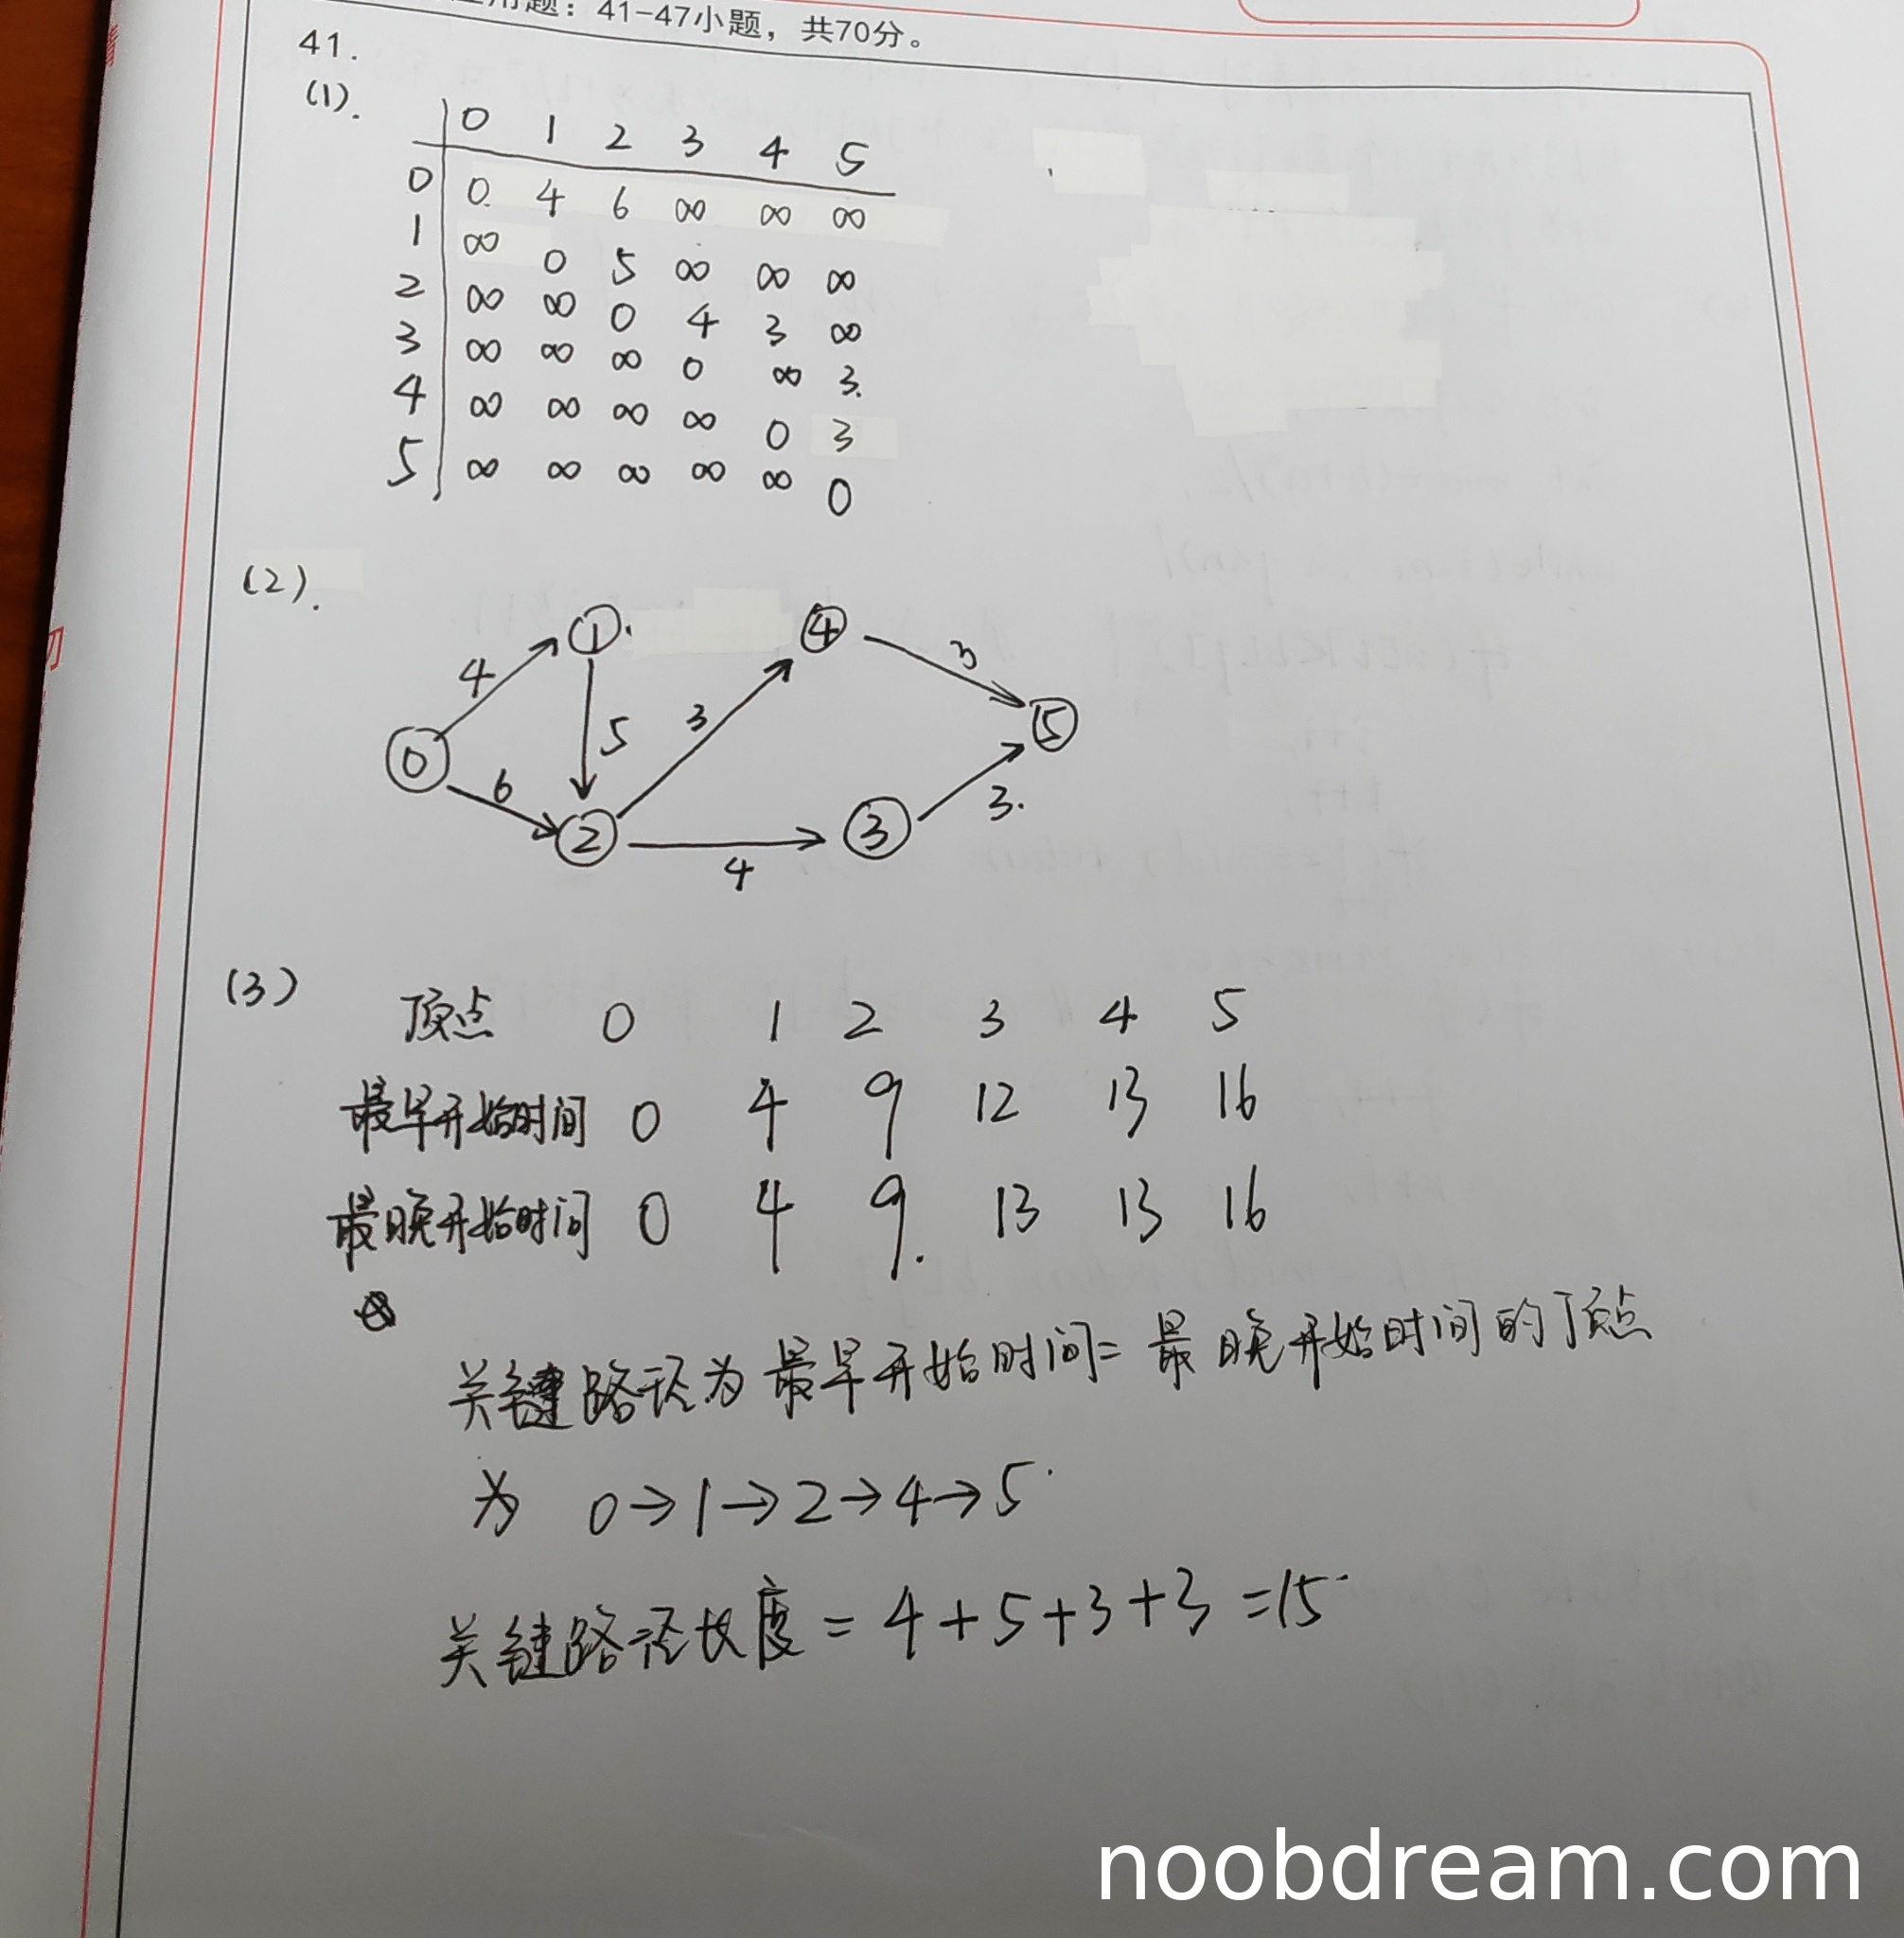 用题：41-47小题，共70分。
41.
(1).
0 1 2 3 4 5
0 0 4 6 ∞ ∞ ∞
1 ∞ 0 5 ∞ ∞ ∞
2 ∞ ∞ 0 4 3 ∞
3 ∞ ∞ ∞ 0 ∞ 3.
4 ∞ ∞ ∞ ∞ 0 3
5 ∞ ∞ ∞ ∞ ∞ 0
(2).
① ④
4 3
5 3 ⑤
0
6 3.
② ③
4
(3) 顶点 0 1 2 3 4 5
最早开始时间 0 4 9 12 13 16
最晚开始时间 0 4 9. 13 13 16
关键路径为最早开始时间=最晚开始时间的顶点
为 0→1→2→4→5
关键路径长度=4+5+3+3=15
noobdream.com